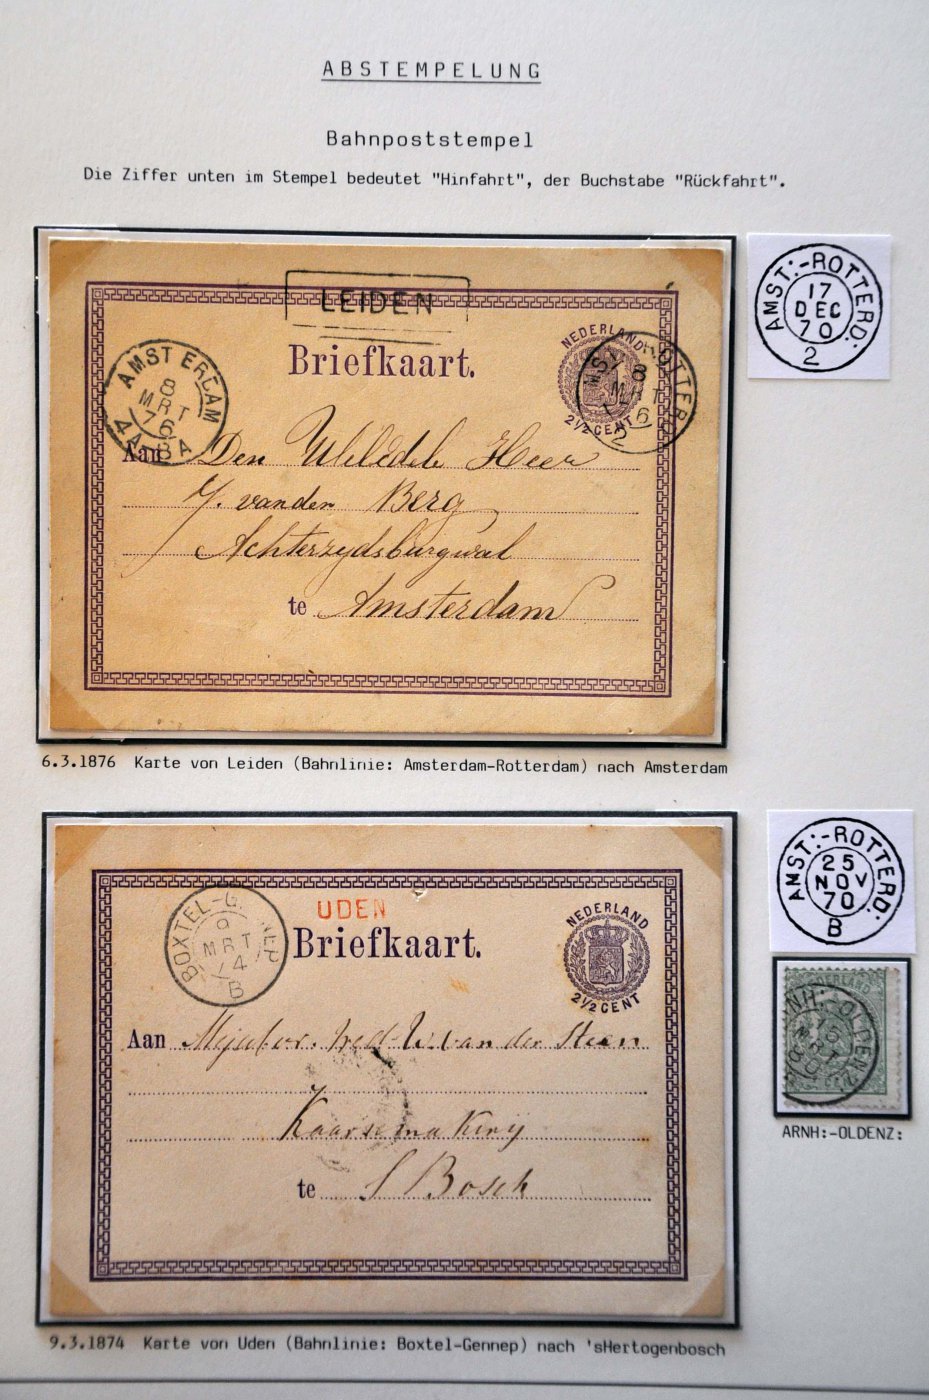 ABSTEMPELUNG
Bahnpoststempel
Die Ziffer unten im Stempel bedeutet "Hinfahrt", der Buchstabe "Rückfahrt".
AMST:-ROTTERD:
17
DEC
70
2
LEIDEN
NEDERLAND
2½ CENT
Briefkaart.
AMSTERDAM
8
MRT
76
4A-8A
ROTTERD
8
MRT
6
2
Aan Den Heer
J. vanden Berg
Achterzydsburgwal
te Amsterdam
6.3.1876 Karte von Leiden (Bahnlinie: Amsterdam-Rotterdam) nach Amsterdam
AMST:-ROTTERD:
25
NOV
70
B
BOXTEL-G
9
MRT
74
B
UDEN
Briefkaart.
NEDERLAND
2½ CENT
Aan van der Steen
Kaarsemakery
te S Bosch
NEDERLAND
ARNH:-OLDENZ
MRT
80
ARNH:-OLDENZ:
9.3.1874 Karte von Uden (Bahnlinie: Boxtel-Gennep) nach 'sHertogenbosch